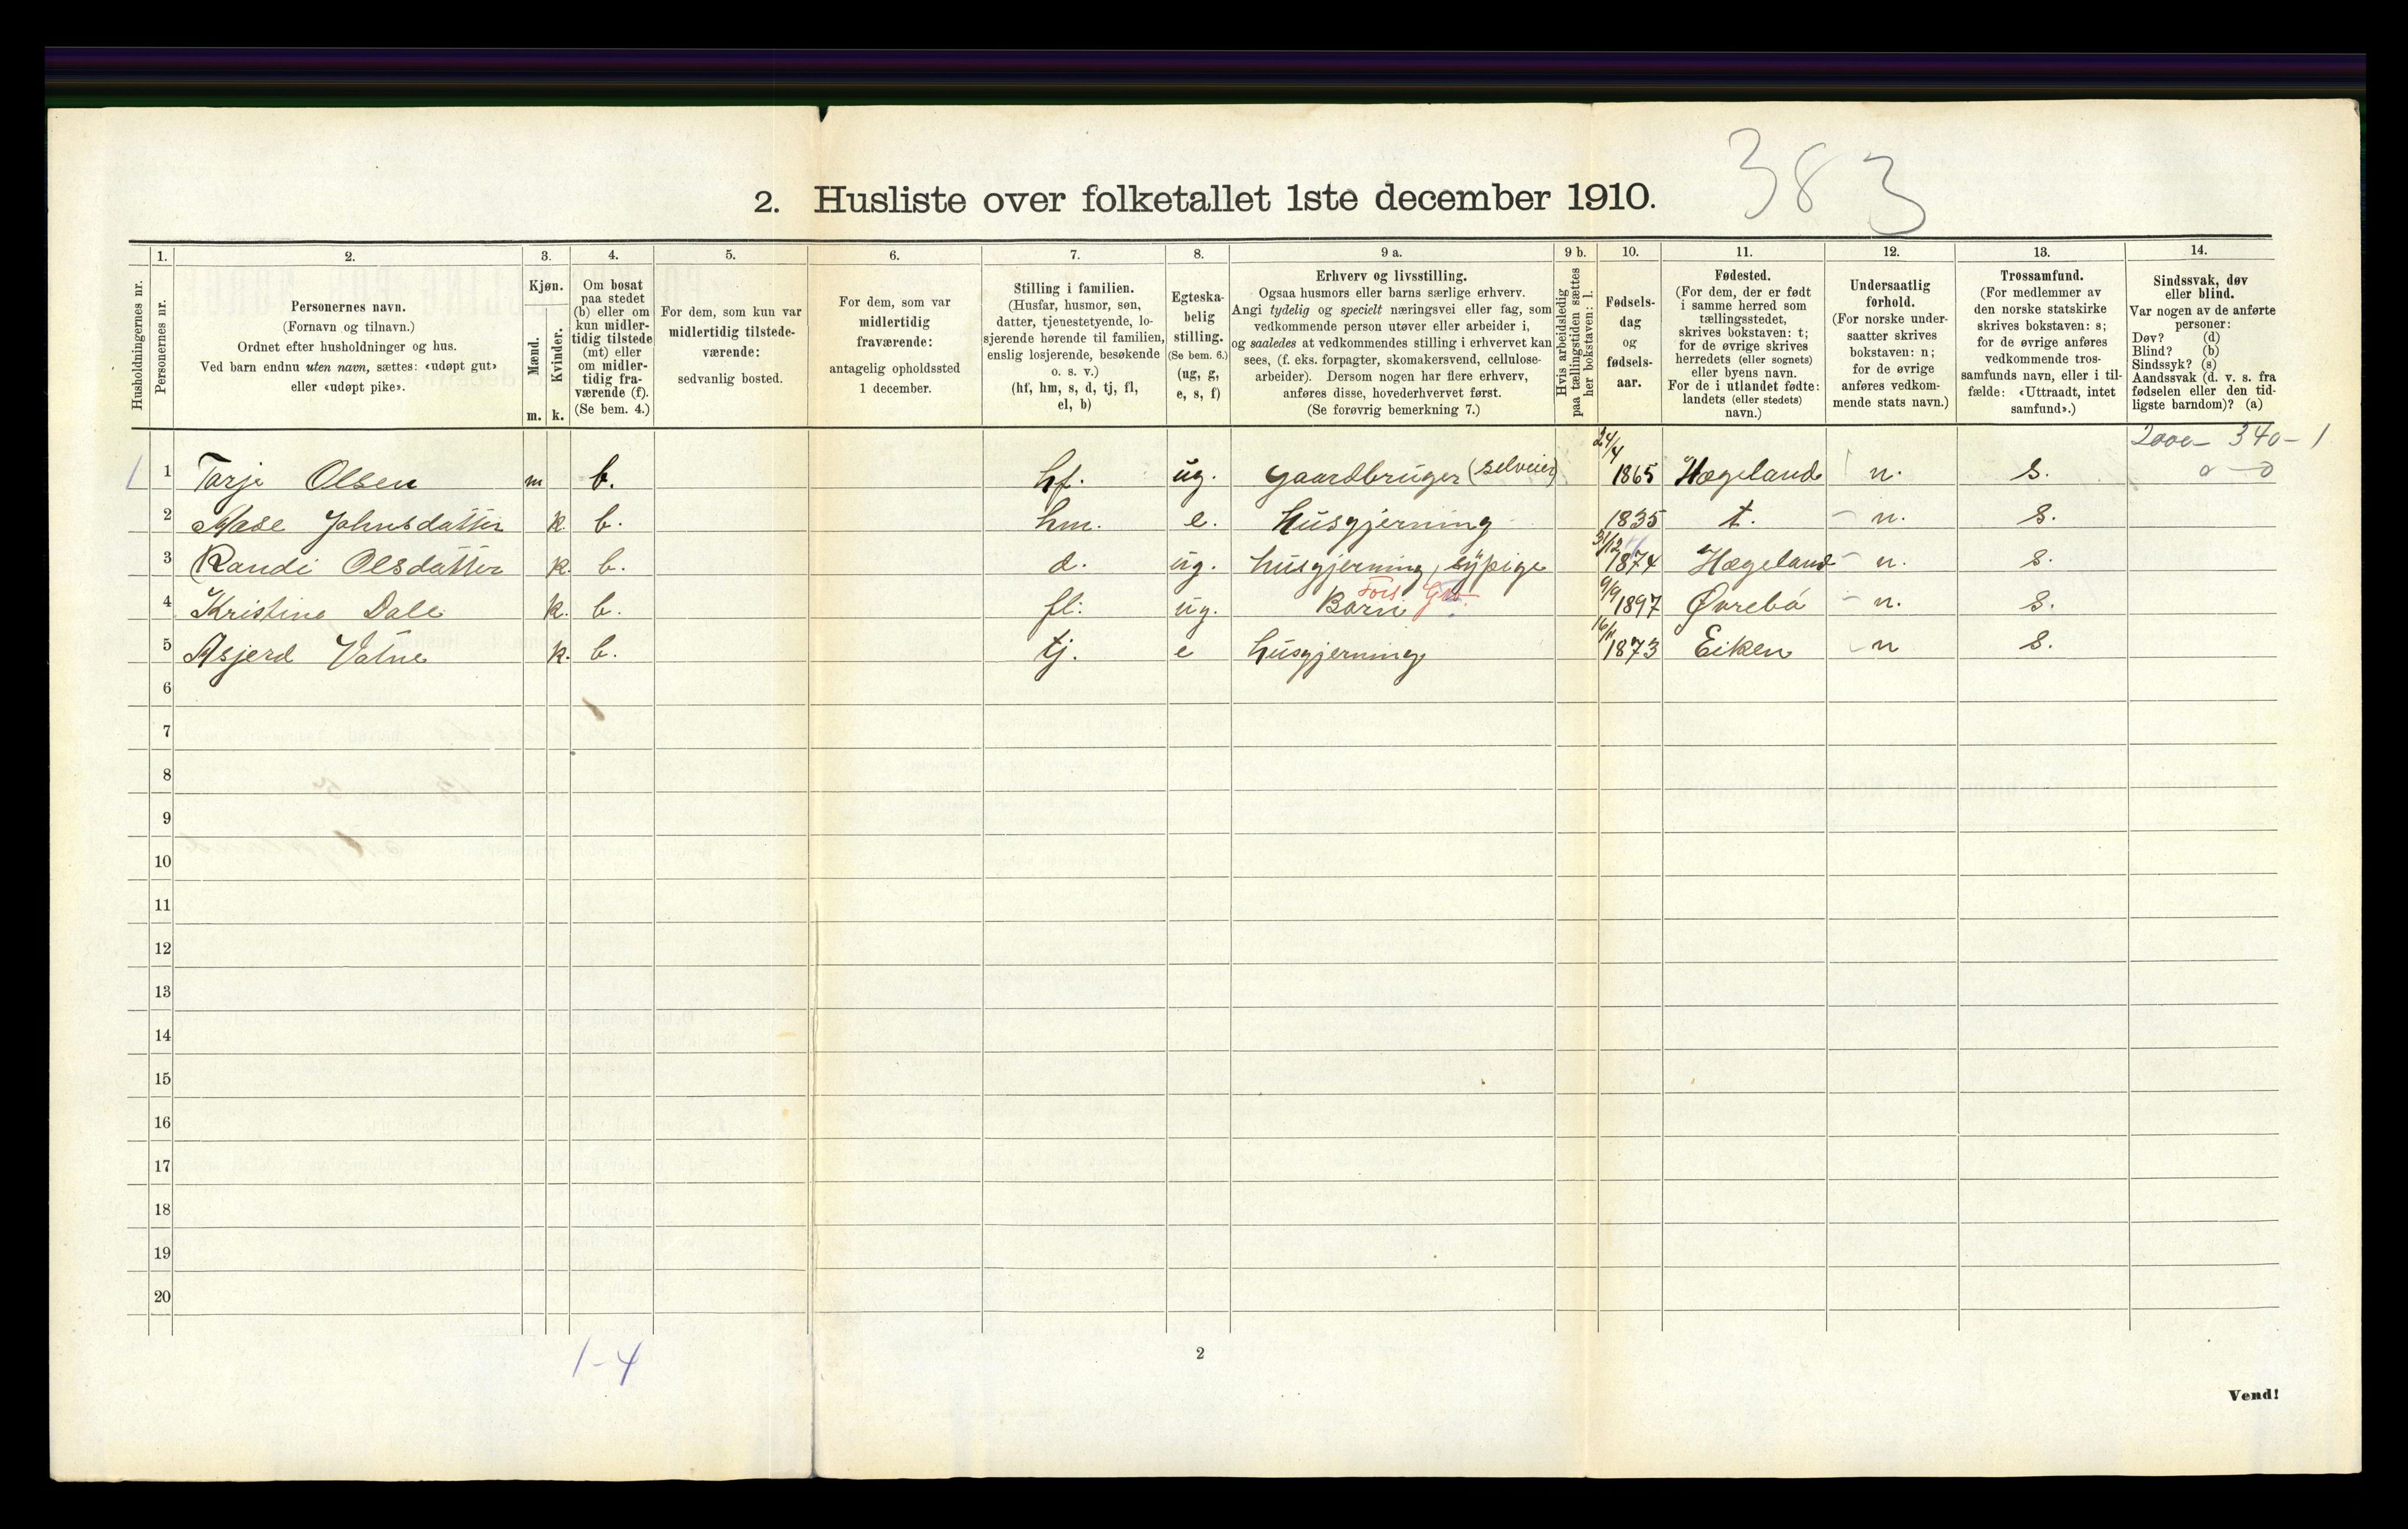 383
2. Husliste over folketallet 1ste december 1910.
Husholdningernes nr.
1.
Personernes nr.
2.
Personernes navn.
(Fornavn og tilnavn.)
Ordnet efter husholdninger og hus.
Ved barn endnu uten navn, sættes: «udøpt gut»
eller «udøpt pike».
3.
Kjøn.
Mænd.
m.
Kvinder.
k.
4.
Om bosat
paa stedet
(b) eller om
kun midler-
tidig tilstede
(mt) eller
om midler-
tidig fra-
værende (f).
(Se bem. 4.)
5.
For dem, som kun var
midlertidig tilstede-
værende:
sedvanlig bosted.
6.
For dem, som var
midlertidig
fraværende:
antagelig opholdssted
1 december.
7.
Stilling i familien.
(Husfar, husmor, søn,
datter, tjenestetyende, lo-
sjerende hørende til familien,
enslig losjerende, besøkende
o. s. v.)
(hf, hm, s, d, tj, fl,
el, b)
8.
Egteska-
belig
stilling.
(Se bem. 6.)
(ug, g,
e, s, f)
9 a.
Erhverv og livsstilling.
Ogsaa husmors eller barns særlige erhverv.
Angi tydelig og specielt næringsvei eller fag, som
vedkommende person utøver eller arbeider i,
og saaledes at vedkommendes stilling i erhvervet kan
sees, (f. eks. forpagter, skomakersvend, cellulose-
arbeider). Dersom nogen har flere erhverv,
anføres disse, hovederhvervet først.
(Se forøvrig bemerkning 7.)
9 b.
Hvis arbeidsledig
paa tællingstiden sættes
her bokstaven: l.
10.
Fødsels-
dag
og
fødsels-
aar.
11.
Fødested.
(For dem, der er født
i samme herred som
tællingsstedet,
skrives bokstaven: t;
for de øvrige skrives
herredets (eller sognets)
eller byens navn.
For de i utlandet fødte:
landets (eller stedets)
navn.)
12.
Undersaatlig
forhold.
(For norske under-
saatter skrives
bokstaven: n;
for de øvrige
anføres vedkom-
mende stats navn.)
13.
Trossamfund.
(For medlemmer av
den norske statskirke
skrives bokstaven: s;
for de øvrige anføres
vedkommende tros-
samfunds navn, eller i til-
fælde: «Uttraadt, intet
samfund».)
14.
Sindssvak, døv
eller blind.
Var nogen av de anførte
personer:
Døv? (d)
Blind? (b)
Sindssyk? (s)
Aandssvak (d. v. s. fra
fødselen eller den tid-
ligste barndom)? (a)
2000 - 340 - 1
0 - 0
1 1 Tarje Olsen m b. hf. ug. gaardbruger (selveier) 24/4 1865 Hægeland n. s.
2 Aase Johnsdatter k. b. hm. e. husgjerning 1835 t. n. s.
3 Randi Olsdatter k. b. d. ug. husgjerning, sypige 31/12 1874 Hægeland n. s.
4 Kristine Dale k. b. fl. ug. Barn 9/9 1897 Øvrebø n. s.
5 Asjerd Vatne k. b. tj. e husgjerning 16/11 1873 Eiken n s.
6
7
8
9
10
11
12
13
14
15
16
17
18
19
20
1-4
2
Vend!